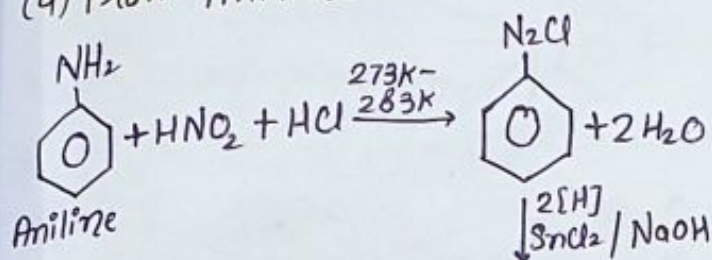 (4)
NH₂
N₂Cl
273K-
283K
+ HNO₂ + HCl → + 2H₂O
Aniline
↓ 2[H]
SnCl₂ / NaOH